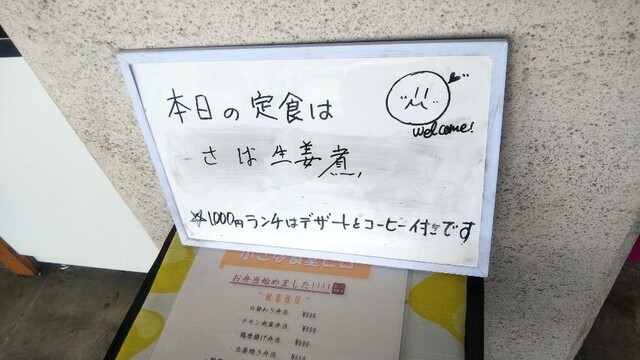 本日の定食は
welcome!
さば生姜煮
※1,000円ランチはデザートとコーヒー付きです
お弁当始めました!!!!
日替わり弁当
チキン南蛮弁当
生姜焼き弁当